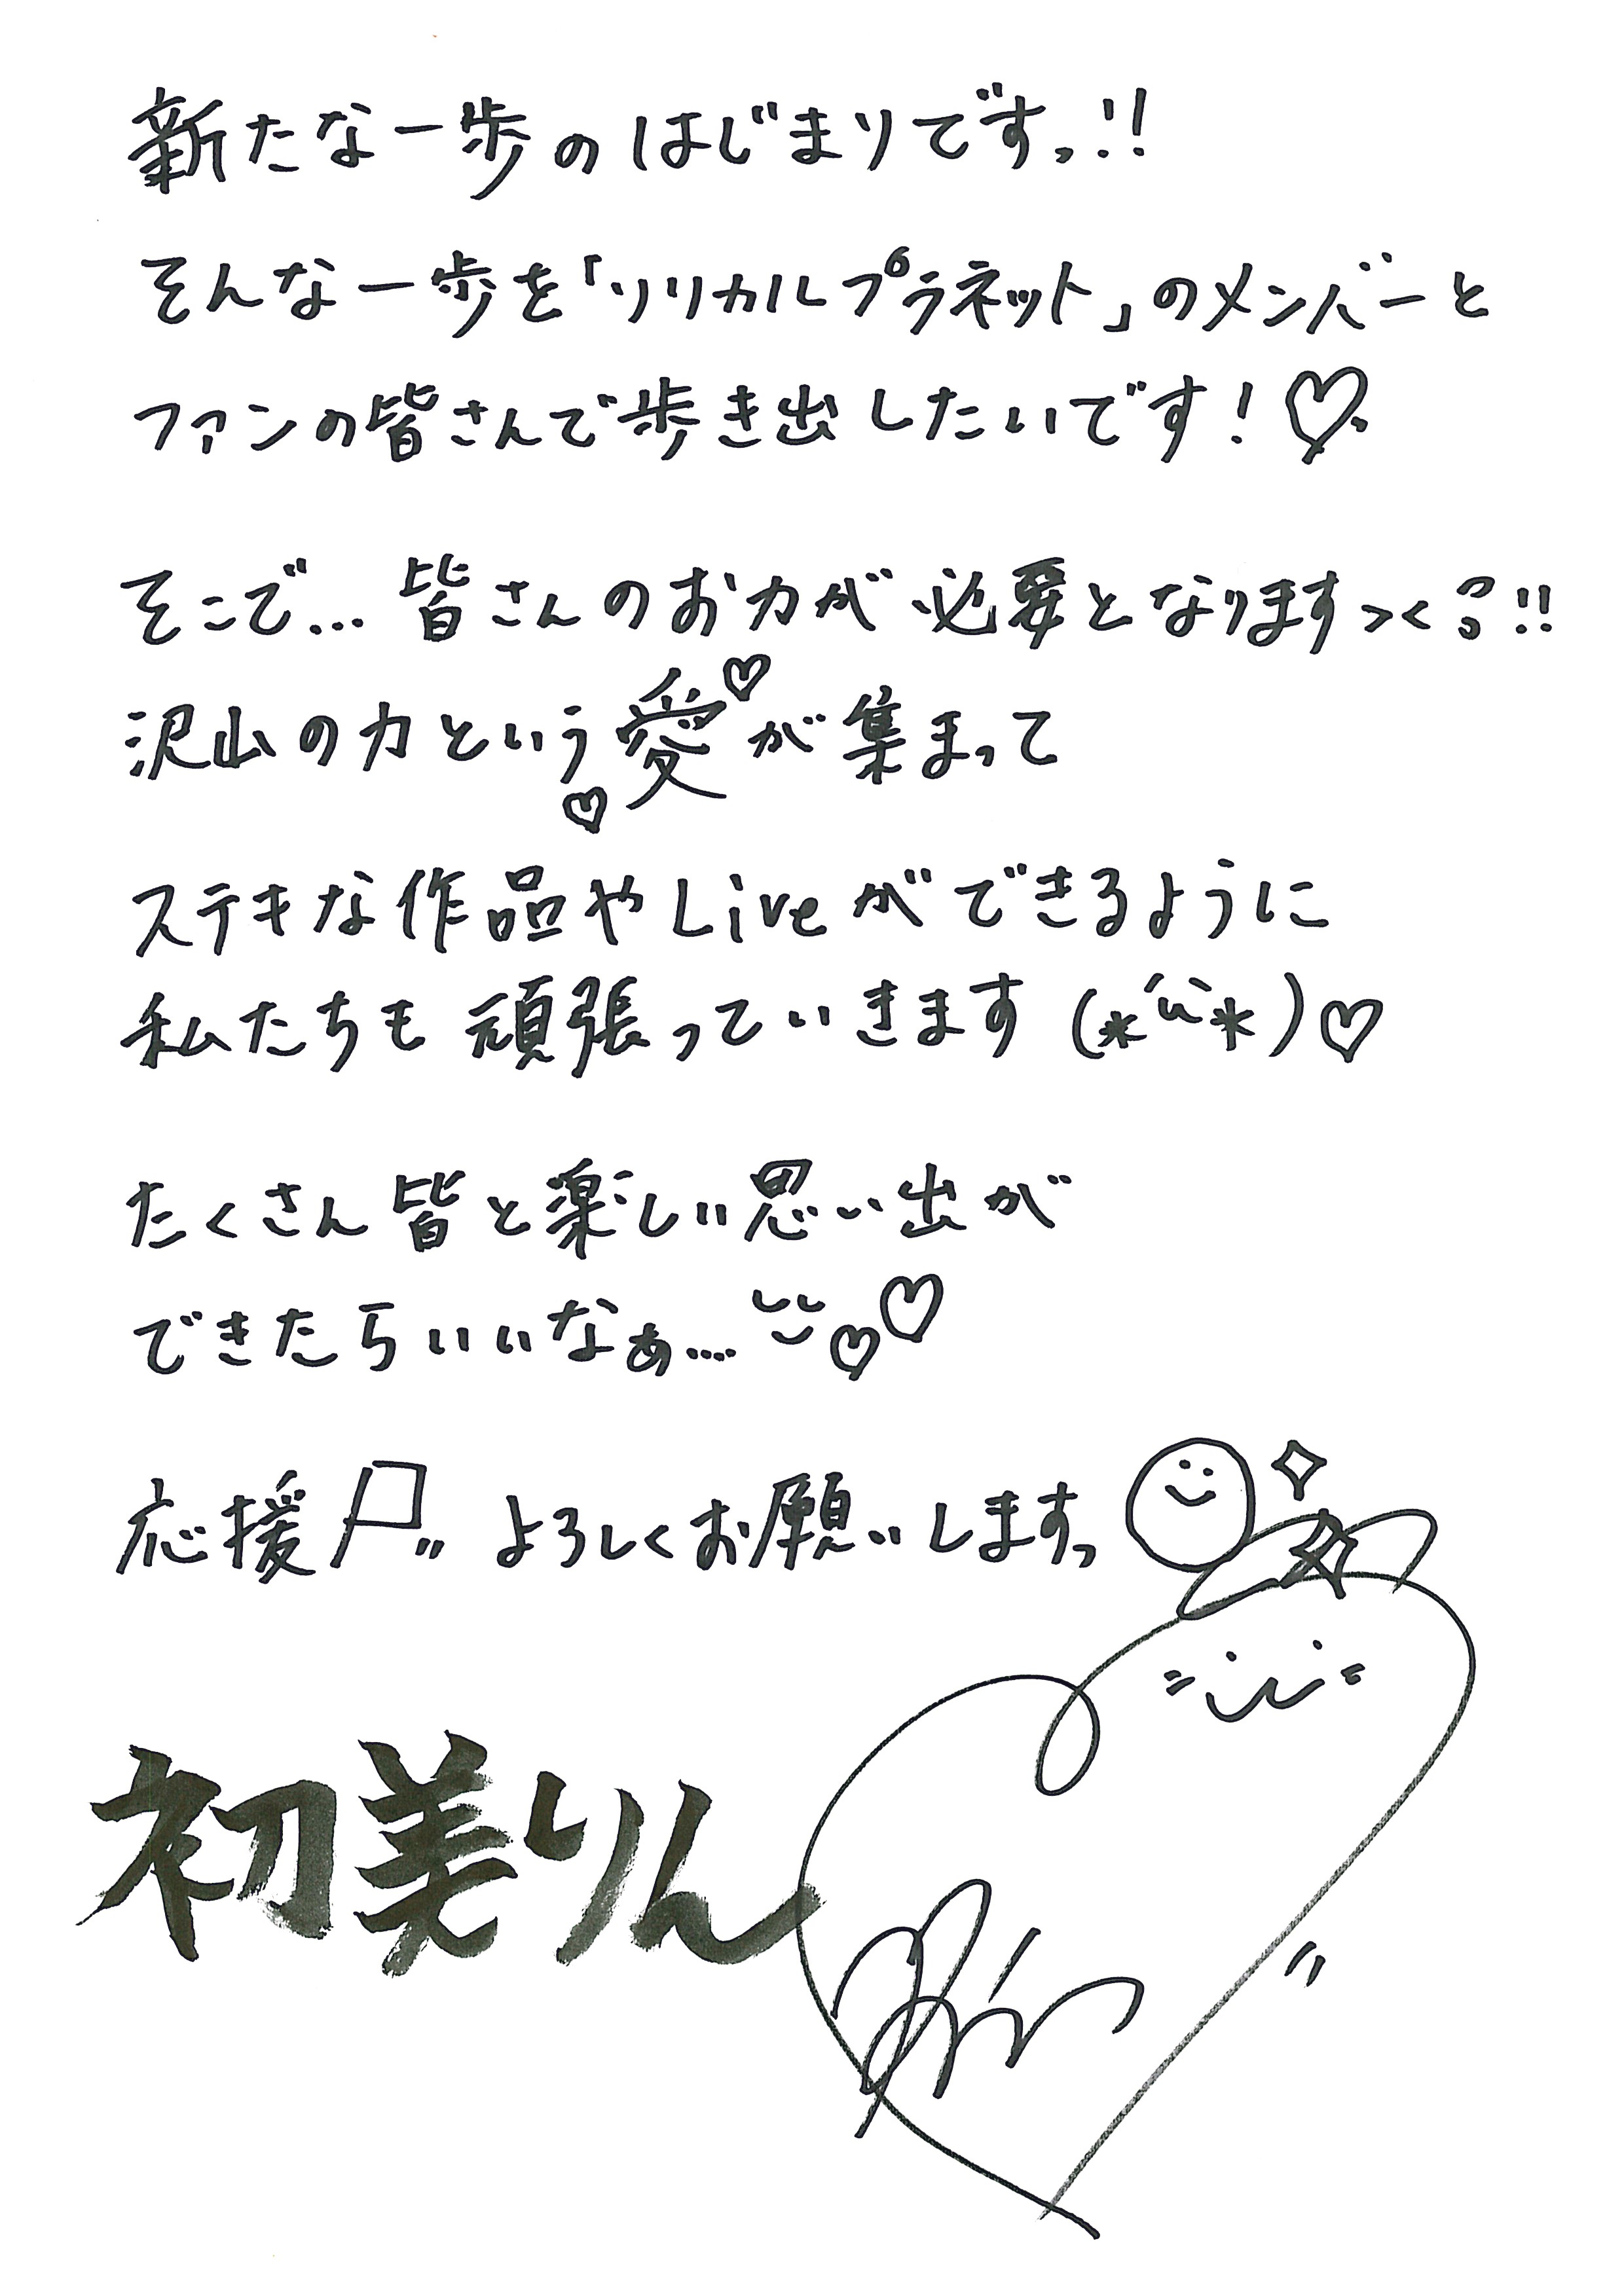 新たな一歩のはじまりですっ!!
そんな一歩を「リリカルプラネット」のメンバーと
ファンの皆さんで歩き出したいです!♡
そこで… 皆さんのお力が必要となりますっ!!
沢山の力という愛♡が集まって
ステキな作品やLiveができるように
私たちも頑張っていきます(*´ω`*)♡
たくさん皆と楽しい思い出が
できたらいいなぁ…♡♡
応援 よろしくお願いしますっ
初美りん
Rin